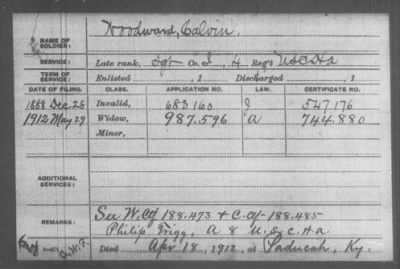 NAME OF SOLDIER: Woodward, Calvin.
SERVICE: Late rank, Sgt Co. I, 4 Reg't U S C H A
TERM OF SERVICE: Enlisted , 1 Discharged , 1
DATE OF FILING. CLASS. APPLICATION NO. LAW. CERTIFICATE NO.
1888 Dec 28 Invalid, 683160 J 547176
1912 May 29 Widow, 987.596 A 744.880
Minor,
ADDITIONAL SERVICES:
REMARKS: See W. Ctf 188.473 + C. ctf 188.485
Philip Trigg, A 8 U.S.C.H.A.
Died Apr 18, 1912, at Paducah, Ky.